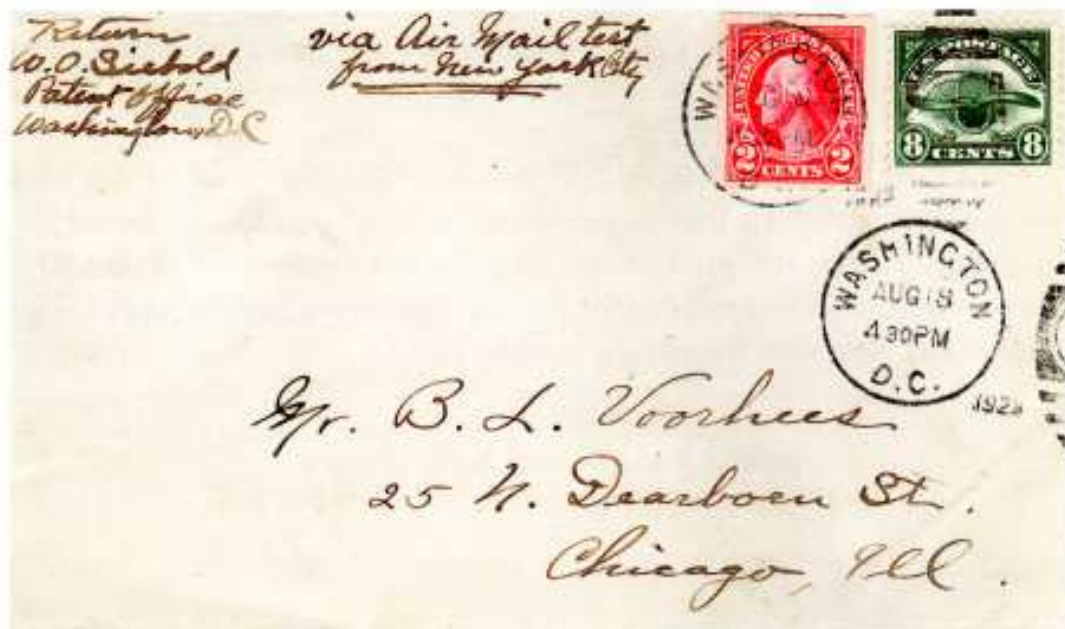 Return
W.O. Siebold
Patent Office
Washington, D.C
via Air Mail test
from New York City
2 CENTS 2
8 CENTS 8
WASHINGTON
AUG 18
4 30 PM
D.C.
Mr. B. L. Voorhees
25 N. Dearborn St.
Chicago, Ill.